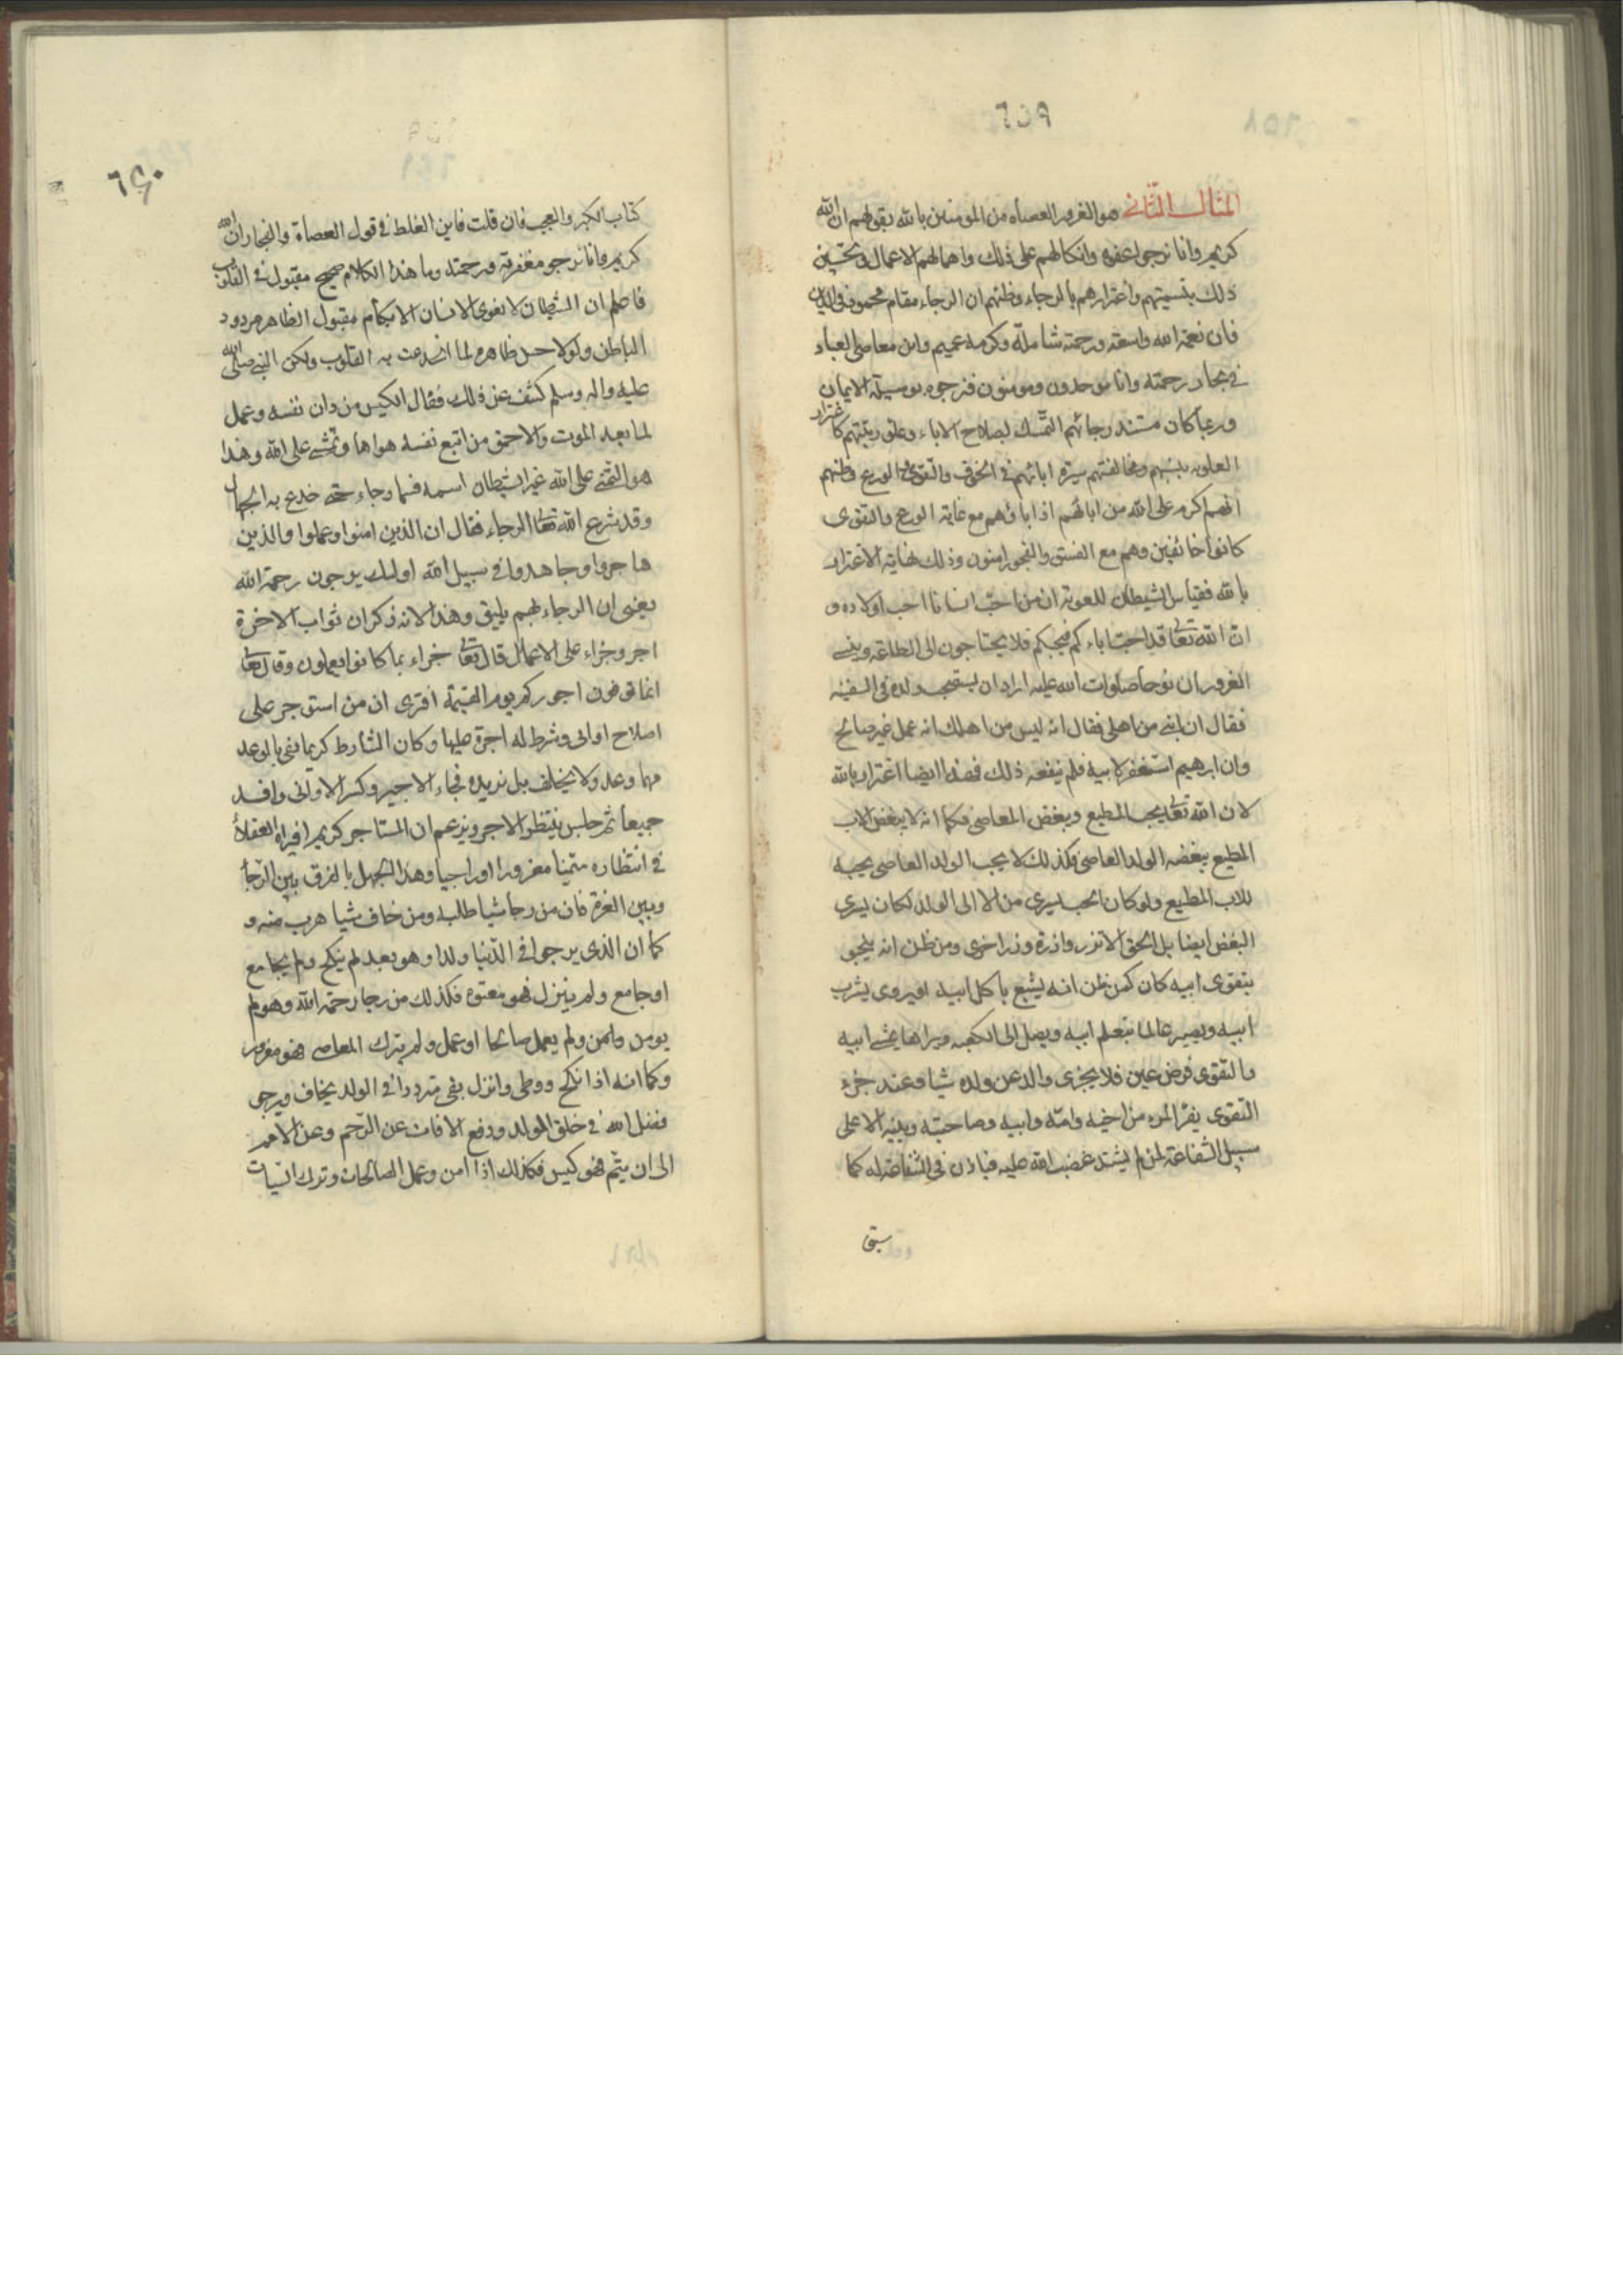 ٦٥٩
المثال الثاني هو الغرور العصاه من المومنين بالله بقولهم ان الله
كريم وانا نرجوا عفوه واتكالهم على ذلك واهمالهم الاعمال وتحسين
ذلك بتسميتهم واغترارهم بالرجاء وظنهم ان الرجاء مقام محمود في الدين
فان نعمة الله واسعة ورحمته شاملة وكرمه عميم واين معاصي العباد
في بحار رحمته وانا موحدون ومومنون فنرجوه بوسيلة الايمان
وربما كان مستند رجائهم التمسك بصلاح الاباء وعلو رتبتهم كاغترار
العلوية بنسبهم ومخالفتهم سيرة ابائهم في الخوف والتقوى والورع وظنهم
انهم اكرم على الله من ابائهم اذ اباؤهم مع غاية الورع والتقوى
كانوا خائفين وهم مع الفسق والفجور امنون وذلك نهاية الاغترار
بالله فقياس الشيطان للعوية ان من احب انسانا احب اولاده و
ان الله تعالى قد احب اباءكم فيحبكم فلا يحتاجون الى الطاعة وينسى
الغرور ان نوحا صلوات الله عليه اراد ان يستصحب ولده في السفينه
فقال ان ابني من اهلي فقال انه ليس من اهلك انه عمل غير صالح
وان ابرهيم استغفر لابيه فلم ينفعه ذلك فهذا ايضا اغترار بالله
لان الله تعالى يحب المطيع ويبغض المعاصي فكما انه لا يبغض الاب
المطيع ببغضه الولد العاصي فكذلك لا يحب الولد العاصي بحبه
للاب المطيع ولو كان الحب يسري من الاب الى الولد لكان يسري
البغض ايضا بل الحق الا تزر وازرة وزر اخرى ومن ظن انه ينجو
بتقوى ابيه كان كمن ظن انه يشبع باكل ابيه او يروى بشرب
ابيه ويصير عالما بتعلم ابيه ويصل الى الكعبه ويراها بمشي ابيه
والتقوى فرض عين فلا يجزى والد عن ولده شيا وعند جزء
التقوى يفر المرء من اخيه وامه وابيه وصاحبته وبنيه الا على
سبيل الشفاعة لمن لم يشتد غضب الله عليه فياذن في الشفاعة له كما
سبق
٦٦٠
كتاب الكبر والعجب فان قلت فاين الغلط في قول العصاة والفجار ان الله
كريم وانا نرجو مغفرته ورحمته وما هذا الكلام صحيح مقبول في القلوب
فاعلم ان الشيطان لا يغوى الانسان الا بكلام مقبول الظاهر مردود
الباطن ولولا حسن ظاهره لما انخدعت به القلوب ولكن النبي صلى الله
عليه واله وسلم كشف عن ذلك فقال الكيس من دان نفسه وعمل
لما بعد الموت والاحمق من اتبع نفسه هواها وتمنى على الله وهذا
هو التمني على الله غير الشيطان اسمه فسماه رجاء حتى خدع به الجهال
وقد شرع الله تعالى الرجاء فقال ان الذين امنوا وعملوا والذين
هاجروا وجاهدوا في سبيل الله اولئك يرجون رحمة الله
يعني ان الرجاء بهم يليق وهذا لانه ذكر ان ثواب الاخرة
اجر وجزاء على الاعمال قال تعالى جزاء بما كانوا يعملون وقال تعالى
انما توفون اجوركم يوم القيمة افترى ان من استوجر على
اصلاح اوانى وشرط له اجرة عليها وكان الشارط كريما يفي بالوعد
مهما وعد ولا يخلف بل يزيده فجاء الاجير وكسر الاوانى وافسد
جميعا ثم جلس ينتظر الاجر ويزعم ان المستاجر كريم افيراه العقلاء
في انتظاره متمنيا مغرورا او راجيا وهذا للجهل بالفرق بين الرجاء
وبين الغرة فان من رجا شيا طلبه ومن خاف شيا هرب منه و
كما ان الذي يرجوا في الدنيا ولدا وهو بعد لم ينكح ولم يجامع
او جامع ولم ينزل فهو معتوه فكذلك من رجا رحمة الله وهو لم
يومن وامن ولم يعمل صالحا او عمل ولم يترك المعاصي فهو مغرور
وكما انه اذا نكح ووطى وانزل بقي مترددا في الولد يخاف ويرجى
فضل الله في خلق الولد ودفع الافات عن الرحم وعن الام
الى ان يتم فهو كيس فكذلك اذا امن وعمل الصالحات وترك السيات